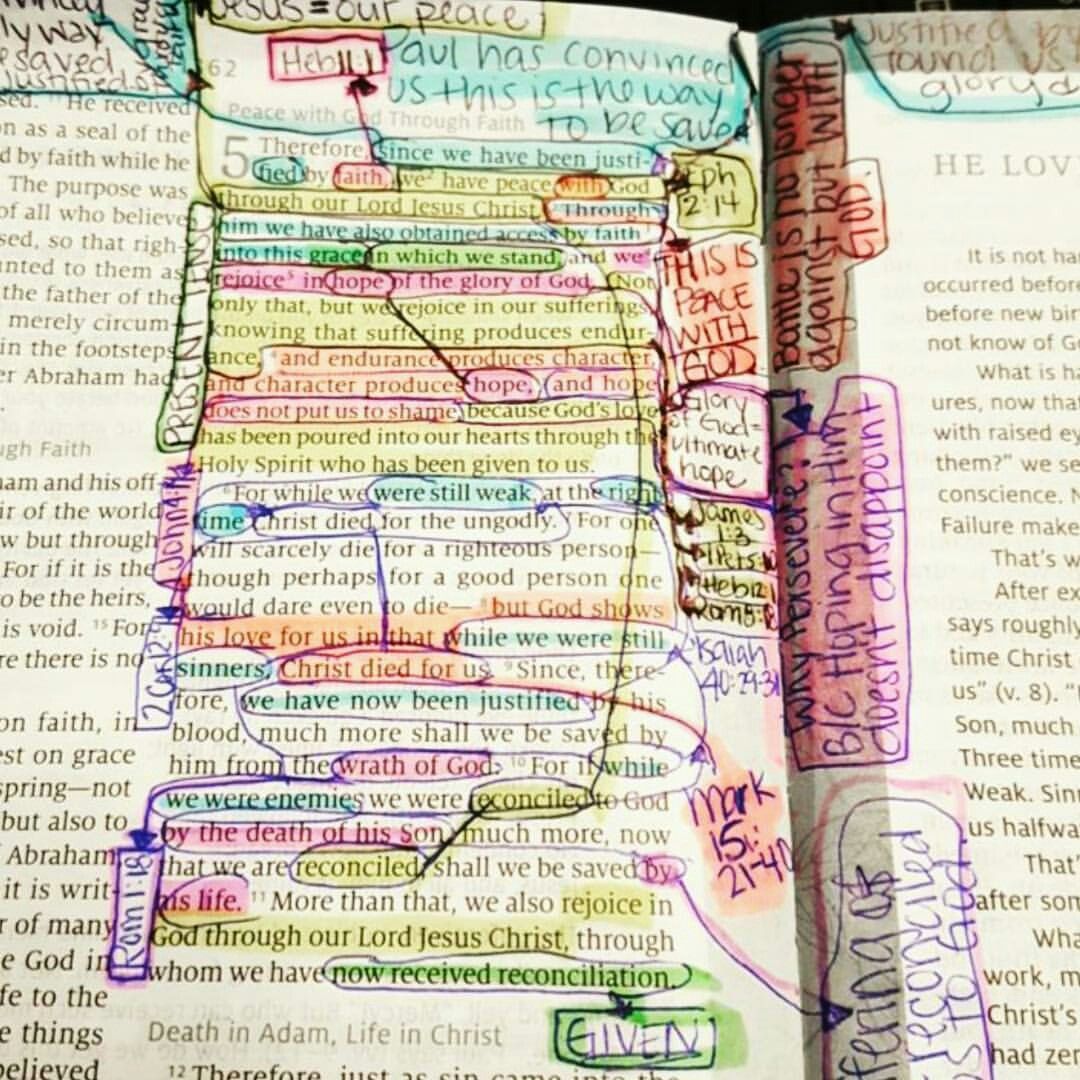 Jesus = our peace
ly way
e saved
Justified
Heb 11:1
Paul has convinced
us this is the way
to be saved
Justified by
found us
glory
62
Peace with God Through Faith
5 Therefore, since we have been justi-
fied by faith, we² have peace with God
through our Lord Jesus Christ. Through
him we have also obtained access by faith
into this grace in which we stand, and we
rejoice⁵ in hope of the glory of God. Not
only that, but we rejoice in our sufferings,
knowing that suffering produces endur-
ance, ⁴ and endurance produces character,
and character produces hope, and hope
does not put us to shame, because God's love
has been poured into our hearts through the
Holy Spirit who has been given to us.
⁶ For while we were still weak, at the right
time Christ died for the ungodly. ⁷ For one
will scarcely die for a righteous person—
though perhaps for a good person one
would dare even to die— ⁸ but God shows
his love for us in that while we were still
sinners, Christ died for us. ⁹ Since, there-
fore, we have now been justified by his
blood, much more shall we be saved by
him from the wrath of God. ¹⁰ For if while
we were enemies we were reconciled to God
by the death of his Son, much more, now
that we are reconciled, shall we be saved by
his life. ¹¹ More than that, we also rejoice in
God through our Lord Jesus Christ, through
whom we have now received reconciliation.
GIVEN
Death in Adam, Life in Christ
¹² Therefore, just as sin came into the
PRESENT
John
2 Cor
Rom 1:18
Eph
2:14
THIS IS
PEACE
WITH
GOD
Glory
of God=
ultimate
hope
James
1:3
Heb 12:1
Isaiah
40:29-31
Mark
15:
21-40
Battle is no longer
against but WITH
GOD.
Why Persevere?
B/c Hoping in Him
doesn't disappoint
reconciled
us to God
sed. ¹¹ He received
on as a seal of the
d by faith while he
The purpose was
of all who believe
sed, so that righ-
unted to them as
the father of the
merely circum-
in the footsteps
er Abraham had
ugh Faith
ham and his off-
ir of the world
w but through
For if it is the
to be the heirs,
is void. ¹⁵ For
re there is no
on faith, in
est on grace
spring—not
but also to
Abraham
it is writ-
r of many
e God in
fe to the
e things
believed
HE LOV
It is not ha
occurred before
before new bir
not know of Go
What is ha
ures, now that
with raised ey
them?" we se
conscience. N
Failure make
That's w
After ex
says roughly
time Christ
us" (v. 8). "
Son, much
Three time
Weak. Sinn
us halfwa
That'
after som
Wha
work, m
Christ's
had zer